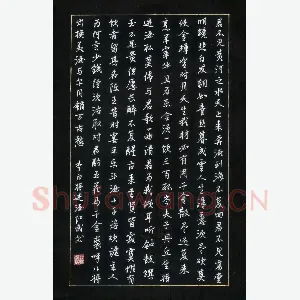 君不見黃河之水天上來奔流到海不復回君不見高堂
明鏡悲白髮朝如青絲暮成雪人生得意須盡歡莫
使金樽空對月天生我材必有用千金散盡還復來
烹羊宰牛且為樂會須一飲三百杯岑夫子丹丘生將
進酒杯莫停與君歌一曲請君為我傾耳聽鐘鼓饌
玉不足貴但願長醉不復醒古來聖賢皆寂寞惟有
飲者留其名陳王昔時宴平樂斗酒十千恣歡謔主人
為何言少錢徑須沽取對君酌五花馬千金裘呼兒將
出換美酒與爾同銷萬古愁 李白將進酒
Shufawang.CN